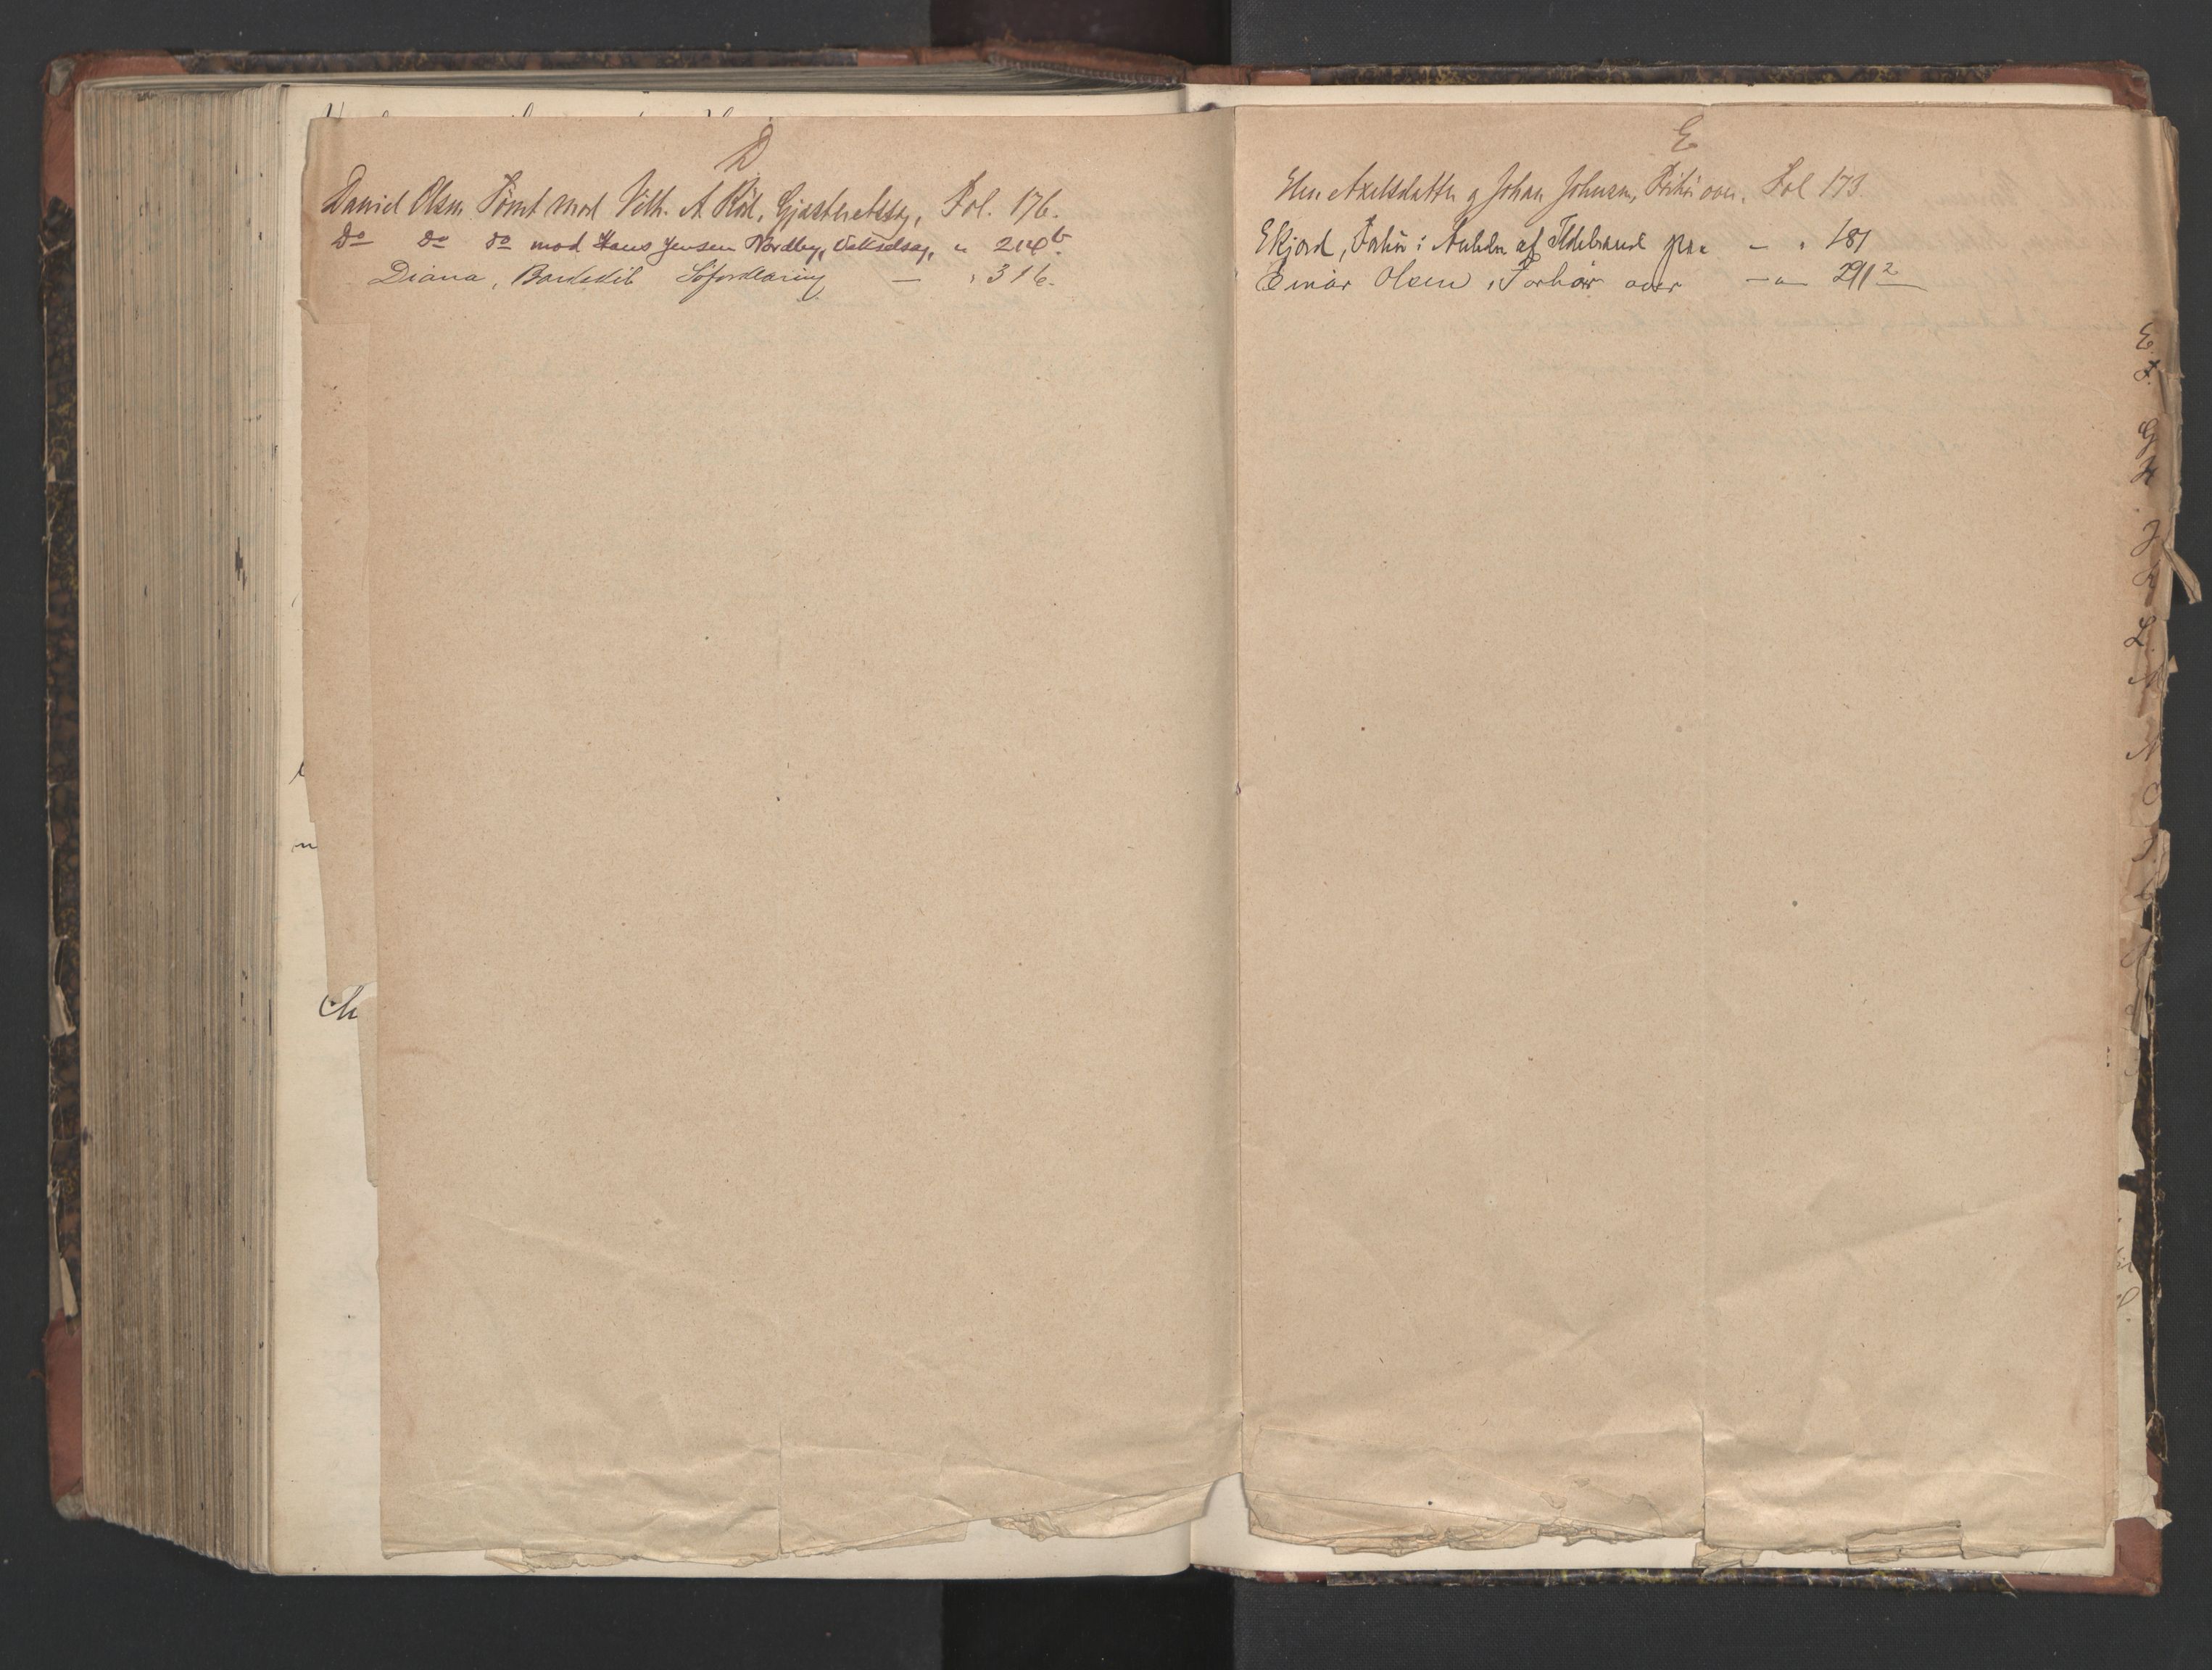 D
Daniel Olsen Tömt mod Vilh. A. Röd, Gjæsteretssag, Fol. 176.
Do do do mod Hans Jensen Nordby, Vekselsag, " 214b.
Diana, Barkskib Söforklaring — " 316.
E
Elen Axelsdatter og Johan Johnsen, Forhör over. Fol 173
Ekjord, Forhör i Anledn af Ildebrand paa — " 181
Einar Olsen, Forhör over — " — 2912
E.
F.
G
H
J
K
L
M
N
O